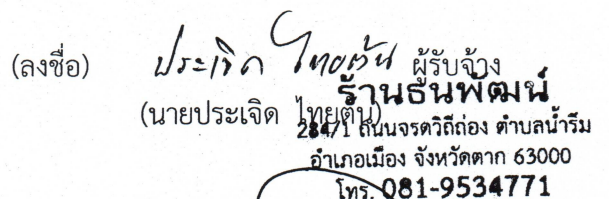 (ลงชื่อ) ประเจิด ไทยตัน ผู้รับจ้าง
(นายประเจิด ไทยตัน)
ร้านธนพัฒน์
284/1 ถนนจรดวิถีถ่อง ตำบลน้ำรึม
อำเภอเมือง จังหวัดตาก 63000
โทร. 081-9534771